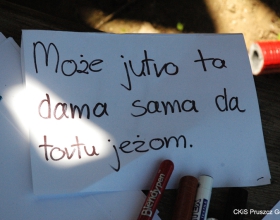 Może jutro ta
dama sama da
tortu jeżom.
Blendypen
CKiS Pruszcz G